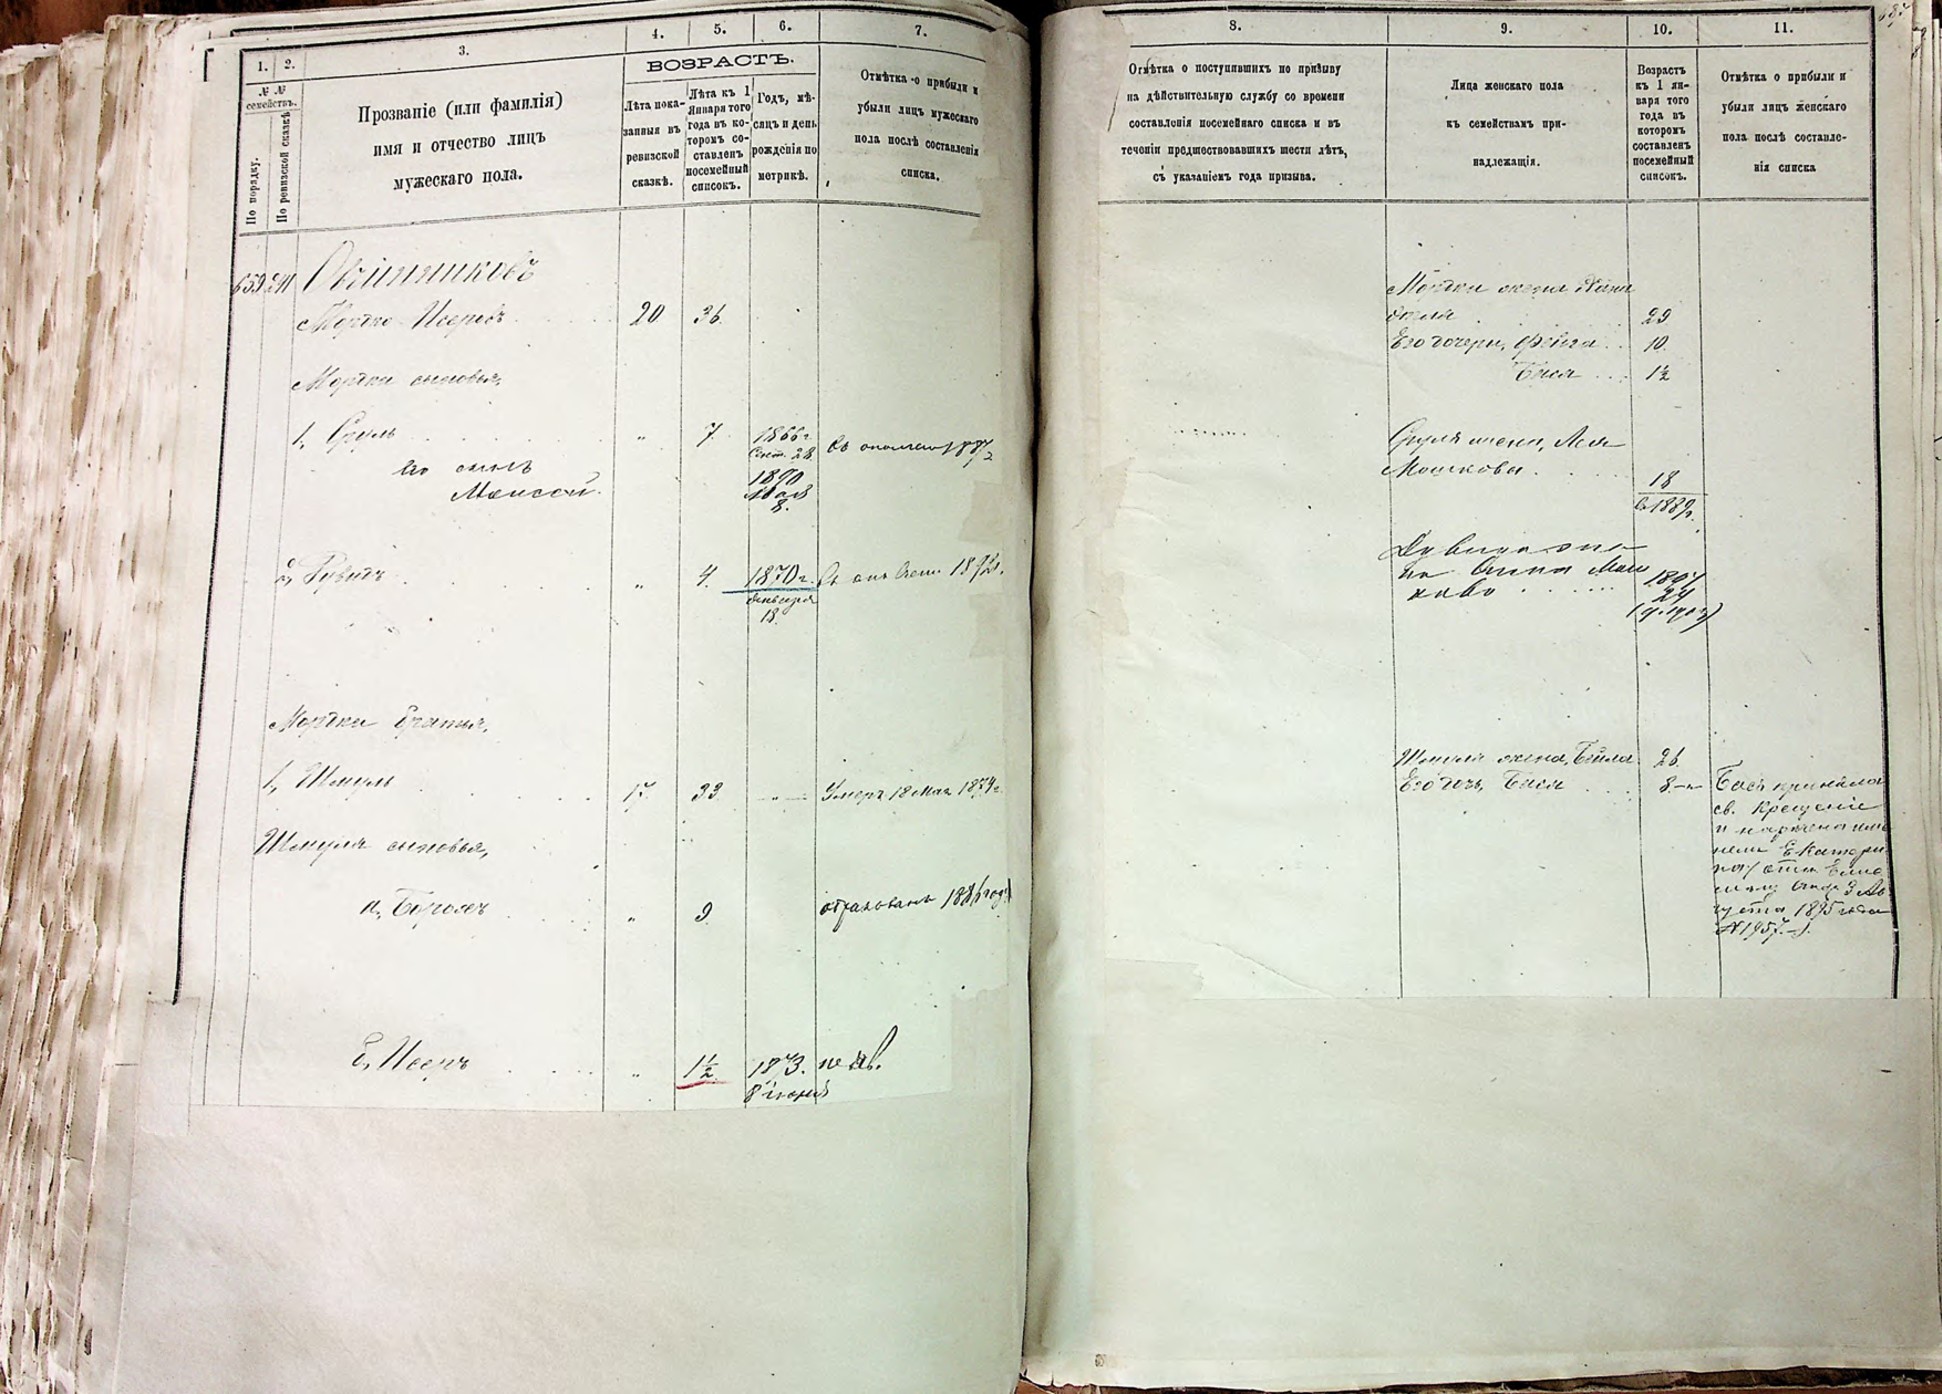 1.
2.
3.
4.
5.
6.
7.
№ №
семействъ.
По порядку.
По ревизской сказкѣ.
Прозваніе (или фамилія)
имя и отчество лицъ
мужескаго пола.
ВОЗРАСТЪ.
Лѣта пока-
занныя въ
ревизской
сказкѣ.
Лѣта къ 1
Января того
года въ ко-
торомъ со-
ставленъ
посемейный
списокъ.
Годъ, мѣ-
сяцъ и день
рожденія по
метрикѣ.
Отмѣтка о прибыли и
убыли лицъ мужескаго
пола послѣ составленія
списка.
659 241 Овчинниковъ
Мортко Исеровъ 20 36.
Мортки сыновья,
1, Сруль " 7. 1866 г.
Сент. 28.
Въ ополчен 1887 г
его сынъ 1890
Моисей. Мая
8.
2, " 4. 1870 г. 1892 г.
Января
18.
Мортки братья,
1, Шмуль 17. 33 Умеръ 18 Мая 1874 г.
Шмуля сыновья,
а, Борохъ " 9 обракованъ 1886 год
б, Исеръ " 1½ 1873. не яв.
8 іюня
8.
9.
10.
11.
Отмѣтка о поступившихъ по призыву
на дѣйствительную службу со времени
составленія посемейнаго списка и въ
теченіи предшествовавшихъ шести лѣтъ,
съ указаніемъ года призыва.
Лица женскаго пола
къ семействамъ при-
надлежащія.
Возрастъ
къ 1 ян-
варя того
года въ
которомъ
составленъ
посемейный
списокъ.
Отмѣтка о прибыли и
убыли лицъ женскаго
пола послѣ составле-
нія списка
Мортки жена
29
Его дочери, Фейга 10.
Бася 1½
Сруля жена, Лея
Мошкова 18
въ 1889 г.
Анна Мош
кова 24
Шмуля жена, Бейла 26.
Его дочь, Бася 8 –"– Бася приняла
св. Крещеніе
и наречена име
немъ Екатери
на
3 Ав
густа 1895 года
№ 1957.